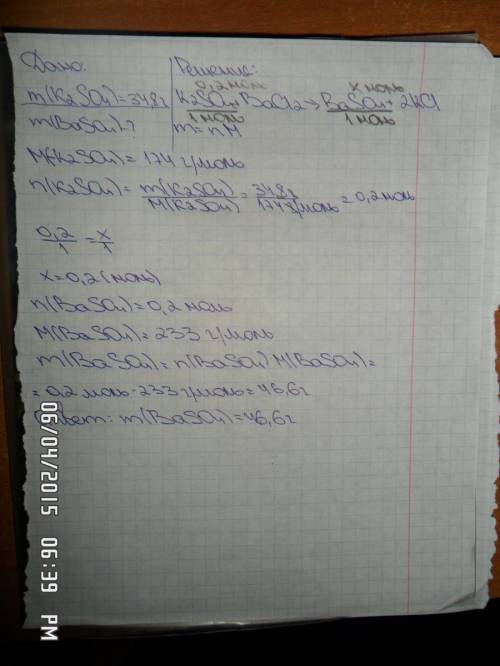 Дано:
m(K2SO4)=34,8г
m(BaSO4)-?
Решение:
0,2 моль x моль
K2SO4+BaCl2→BaSO4+2KCl
1 моль 1 моль
m=nM
M(K2SO4)=174 г/моль
n(K2SO4)=m(K2SO4)/M(K2SO4)=34,8г/174г/моль=0,2 моль
0,2/1=x/1
x=0,2(моль)
n(BaSO4)=0,2 моль
M(BaSO4)=233 г/моль
m(BaSO4)=n(BaSO4)·M(BaSO4)=
=0,2 моль·233 г/моль=46,6г
Ответ: m(BaSO4)=46,6г
06/04/2015 06:39 PM